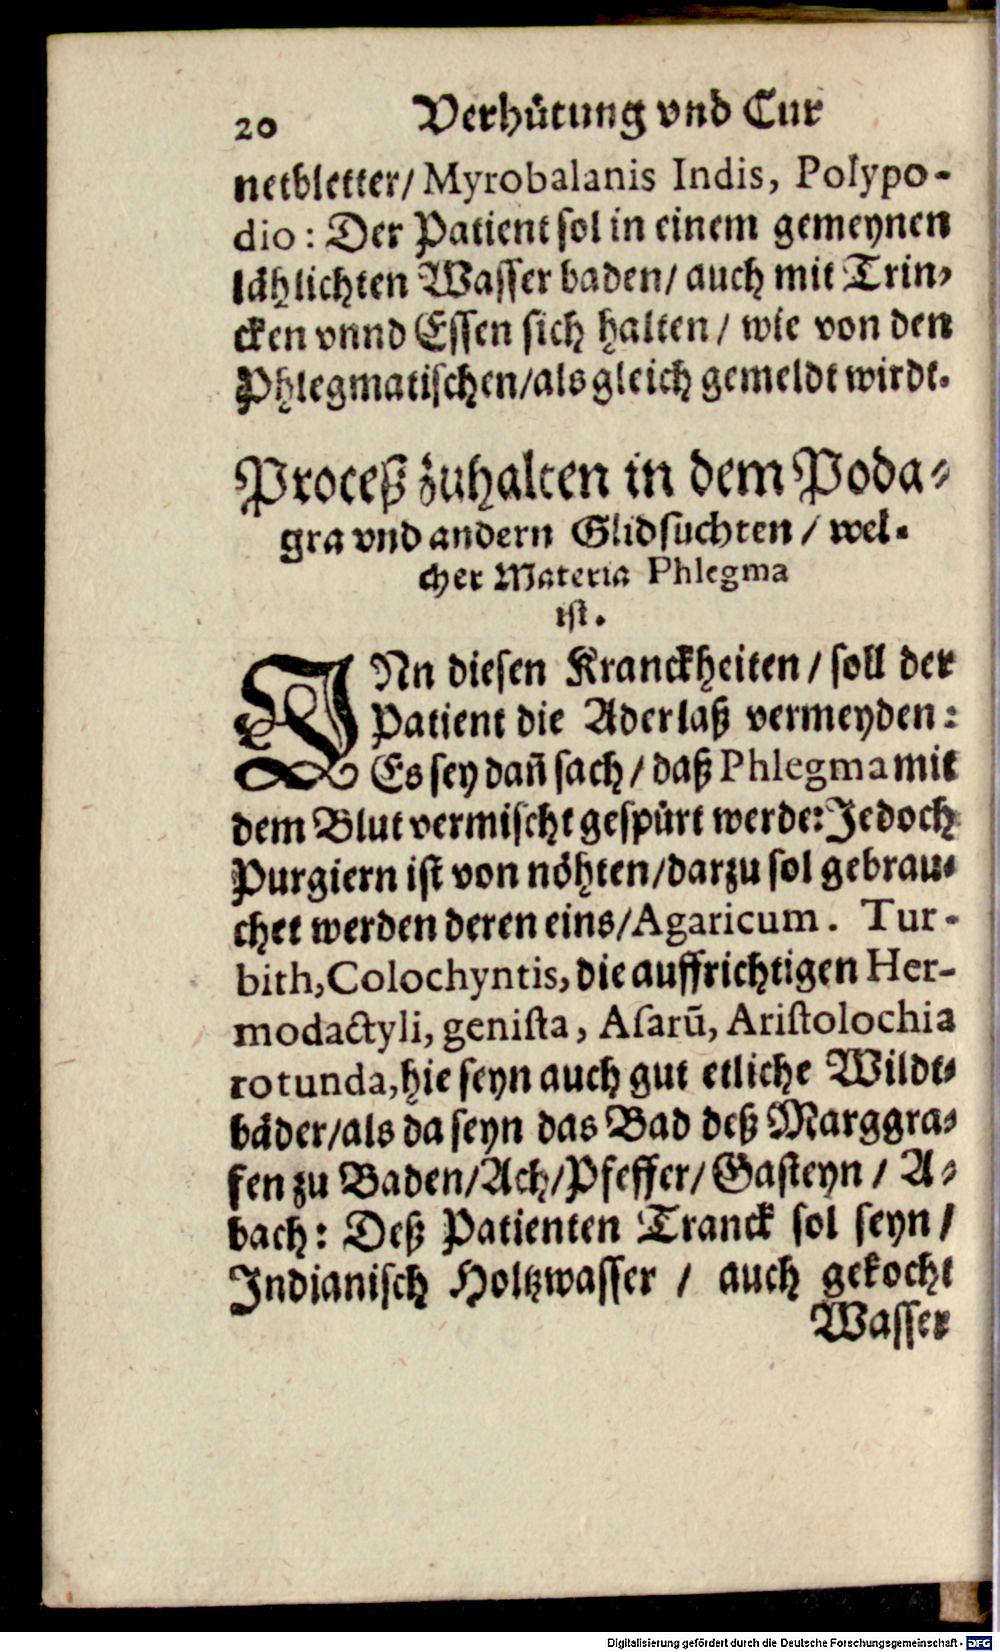 20 Verhütung vnd Cur
netbletter/ Myrobalanis Indis, Polypo-
dio: Der Patient sol in einem gemeynen
lählichten Wasser baden/ auch mit Trin-
cken vnnd Essen sich halten/ wie von den
Phlegmatischen/als gleich gemeldt wirdt.
Proceß zuhalten in dem Poda-
gra vnd andern Glidsuchten/ wel-
cher Materia Phlegma
ist.
INn diesen Kranckheiten/ soll der
Patient die Aderlaß vermeyden:
Es sey dañ sach/ daß Phlegma mit
dem Blut vermischt gespürt werde: Jedoch
Purgiern ist von nöhten/darzu sol gebrau-
chet werden deren eins/Agaricum. Tur-
bith, Colochyntis, die auffrichtigen Her-
modactyli, genista, Asarū, Aristolochia
rotunda, hie seyn auch gut etliche Wildt-
bäder/als da seyn das Bad deß Marggra-
fen zu Baden/Ach/Pfeffer/ Gasteyn/ A-
bach: Deß Patienten Tranck sol seyn/
Indianisch Holtzwasser/ auch gekocht
Wasser
Digitalisierung gefördert durch die Deutsche Forschungsgemeinschaft - DFG